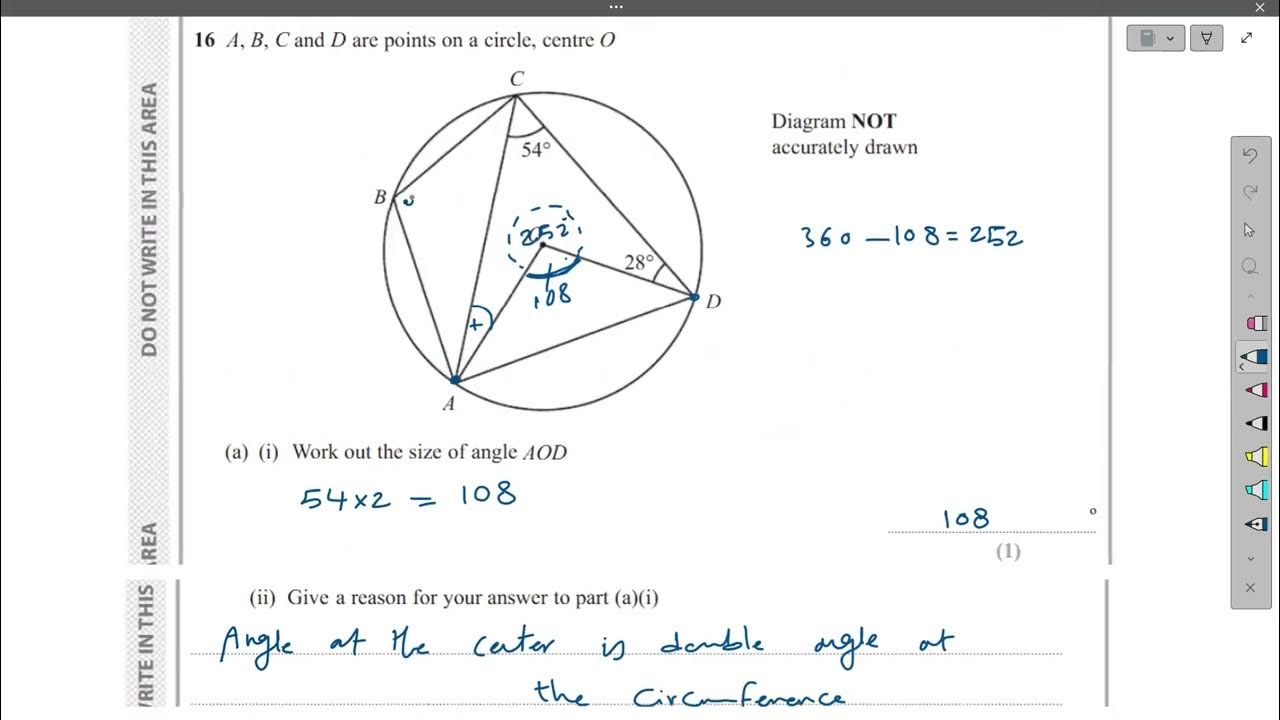 16 A, B, C and D are points on a circle, centre O
C
Diagram NOT
accurately drawn
54°
B
252
360 – 108 = 252
28°
108
D
A
(a) (i) Work out the size of angle AOD
54 x 2 = 108
108 °
(1)
(ii) Give a reason for your answer to part (a)(i)
Angle at the center is double angle at
the circumference
DO NOT WRITE IN THIS AREA
AREA
WRITE IN THIS